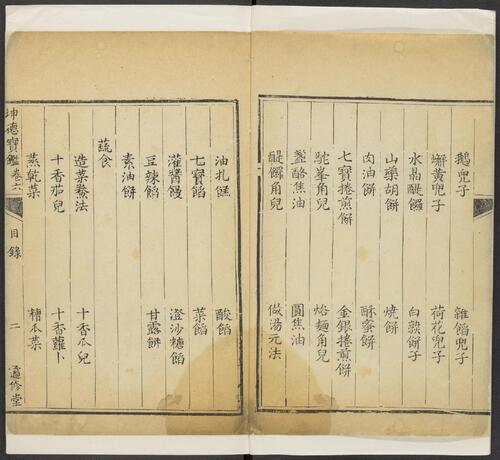 鵝兜子　雜餡兜子
蟹黃兜子　荷花兜子
水晶醍饠　白熟餅子
山藥胡餅　燒餅
肉油餅　酥蜜餅
七寶捲煎餅　金銀捲煎餅
駝峯角兒　烙麵角兒
盞酪焦油　圓焦油
醍饠角兒　做湯元法
油扎　酸餡
七寶餡　菜餡
灌醬饅　澄沙糖餡
豆辣餡　甘露餅
素油餅
蔬食
造菜鮝法　十香瓜兒
十香茄兒　十香蘿卜
蒸乾菜　糟瓜菜
坤德寶鑑　卷六　目錄　二　適修堂